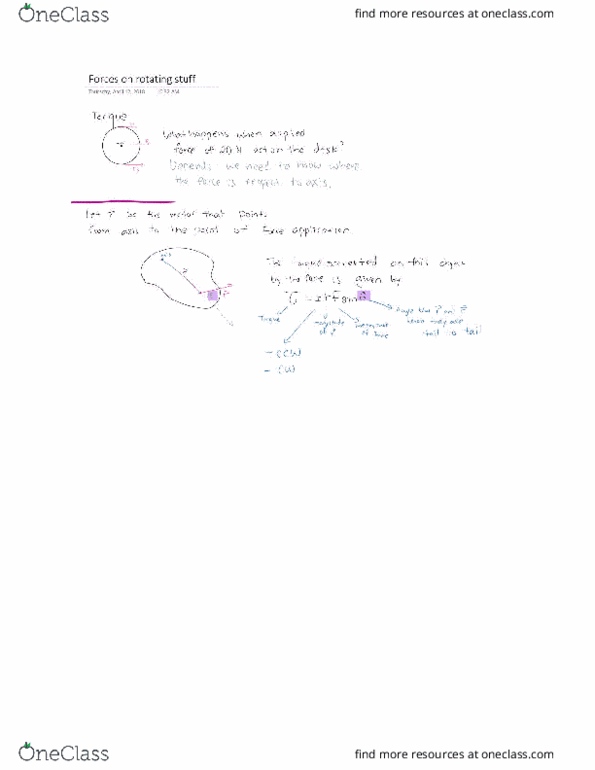 OneClass
find more resources at oneclass.com
Forces on rotating stuff
Torque
What happens when applied
force of 20 N act on the disk?
Depends we need to know where
the force is respect to axis.
Let r be the vector that points
from axis to the point of force application.
on this object
by the force is given by
Torque
magnitude of r
magnitude of force
when they are
tail to tail
- CCW
- CW
OneClass
find more resources at oneclass.com